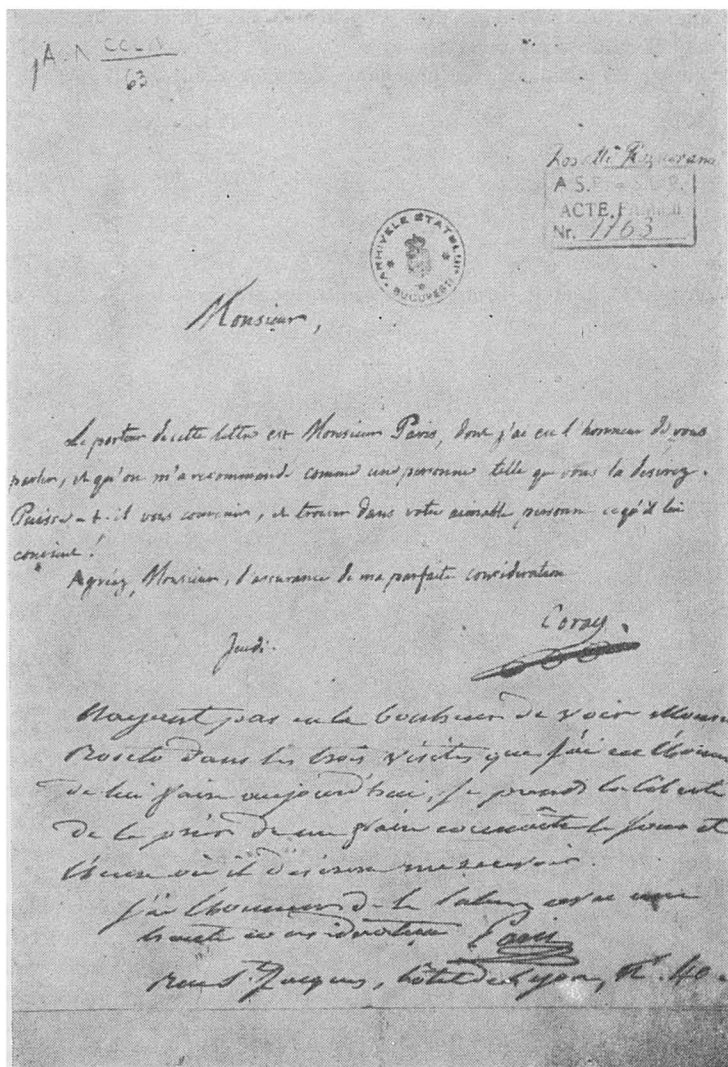 A.N CCLIV
63
Rosetti
A.S.
ACTE.
Nr. 1163
ARHIVELE STATULUI
BUCUREȘTI
Monsieur,
Le porteur de cette lettre est Monsieur Paris, dont j'ai eu l'honneur de vous
parler, et qu'on m'a recommandé comme une personne telle que vous la desirez.
Puisse-t-il vous convenir, et trouver dans votre aimable personne ce qu'il lui
convient!
Agréez, Monsieur, l'assurance de ma parfaite consideration
Coray.
Jeudi.
N'ayent pas eu le bonheur de voir Monsieur
Roseto dans les trois visites que j'ai eu l'honneur
de lui faire aujourd'hui, je prends la liberté
de le prier de me faire connoître le jour et
l'heure où il désirera me recevoir.
J'ai l'honneur de le saluer avec une
haute considération Paris
rue St. Jacques, hôtel de Lyon, No. 40.